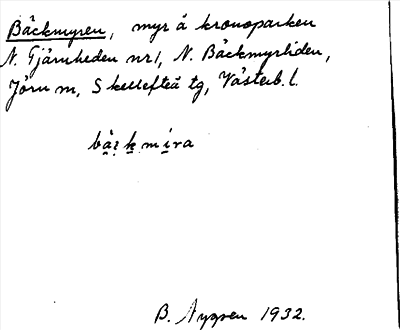 Bäckmyren, myr å kronoparken
N. Tjärnheden nr 1, N. Bäckmyrliden,
Jörn m, Skellefteå tg, Västerb. l.
B. Nygren 1932.